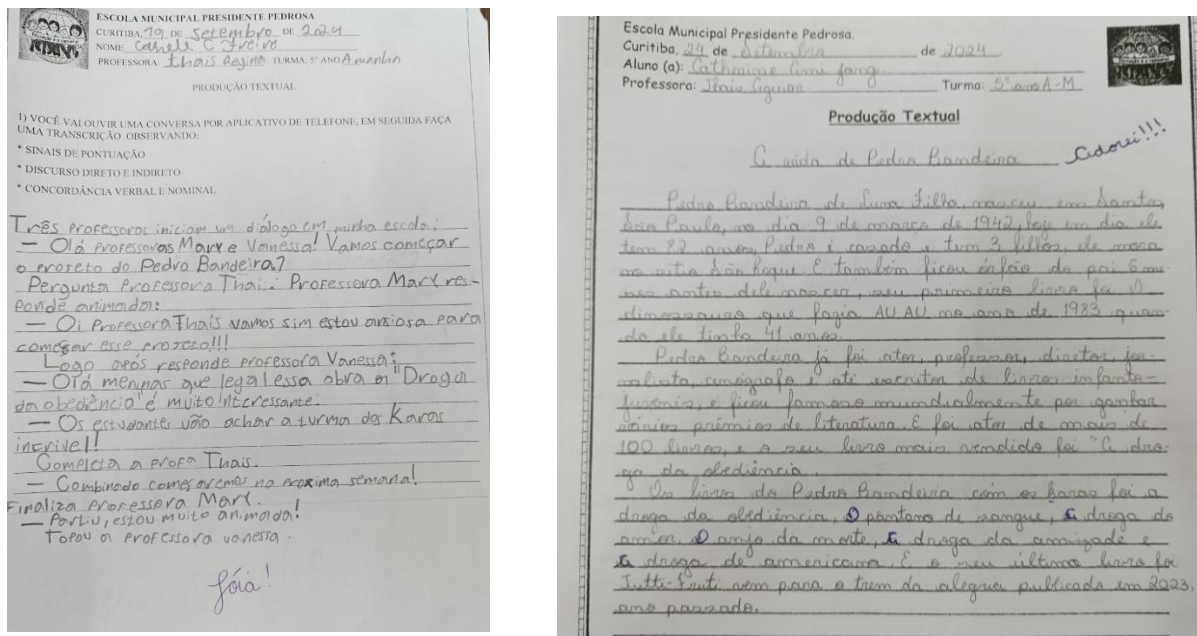 ESCOLA MUNICIPAL PRESIDENTE PEDROSA
CURITIBA, 19 DE setembro DE 2024
NOME C Freire
PROFESSORA: thais Regina TURMA: 5º ANO A manhã
PRODUÇÃO TEXTUAL
1) VOCÊ VAI OUVIR UMA CONVERSA POR APLICATIVO DE TELEFONE, EM SEGUIDA FAÇA
UMA TRANSCRIÇÃO OBSERVANDO:
* SINAIS DE PONTUAÇÃO
* DISCURSO DIRETO E INDIRETO
* CONCORDÂNCIA VERBAL E NOMINAL
Três professoras iniciam um diálogo em minha escola:
— Olá professoras Mary e Vanessa! Vamos começar
o projeto do Pedro Bandeira?
Pergunta Professora Thais. Professora Mary res-
ponde animada:
— Oi Professora Thais vamos sim estou ansiosa para
começar esse projeto!!!
Logo após responde professora Vanessa:
— Olá meninas que legal essa obra a "Droga
da obediência" é muito interessante.
— Os estudantes vão achar a turma dos Karas
incrivel!
Completa a profa Thais.
— Combinado começaremos na proxima semana!
Finaliza Professora Mary.
— Partiu, estou muito animada!
Topou a professora vanessa.
Jóia!
Escola Municipal Presidente Pedrosa
Curitiba, 24 de Setembro de 2024
Aluno (a): Catherine
Professora: Thais Turma: 5º ano A-M
Produção Textual
A vida de Pedro Bandeira
Adorei!!!
Pedro Bandeira de Luna Filho, nasceu em Santos,
São Paulo, no dia 9 de março de 1942, hoje em dia ele
tem 82 anos, Pedro é casado e tem 3 filhos, ele mora
no sitio São Roque. E também ficou órfão do pai 6 me-
ses antes dele nascer, seu primeiro livro foi O
dinossauro que fazia AU AU no ano de 1983 quan-
do ele tinha 41 anos.
Pedro Bandeira já foi ator, professor, diretor, jor-
nalista, cenógrafo e até escritor de livros infanto-
juvenis, e ficou famoso mundialmente por ganhar
vários prêmios de literatura. E foi ator de mais de
100 livros, e o seu livro mais vendido foi "A dro-
ga da obediência.
Os livros do Pedro Bandeira com os karas foi a
droga da obediência, O pântano de sangue, A droga do
amor, O anjo da morte, A droga da amizade e
A droga de americana. E o seu último livro foi
Tutti-Fruti vem para o trem da alegria publicado em 2023,
ano passado.